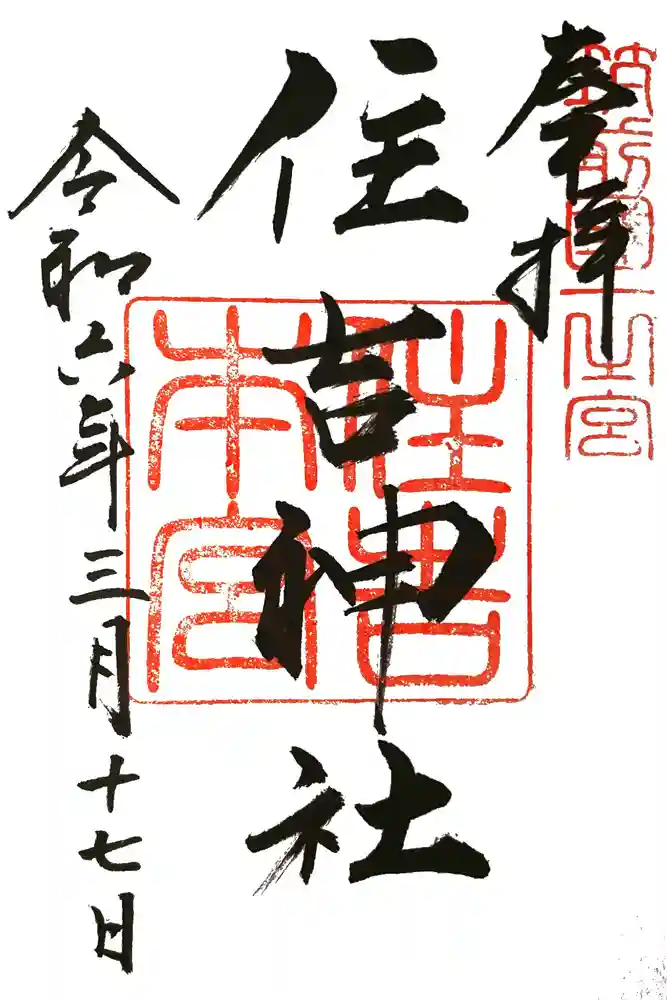 奉拝
筑前國一之宮
住吉神社
住吉
本宮
令和六年三月十七日